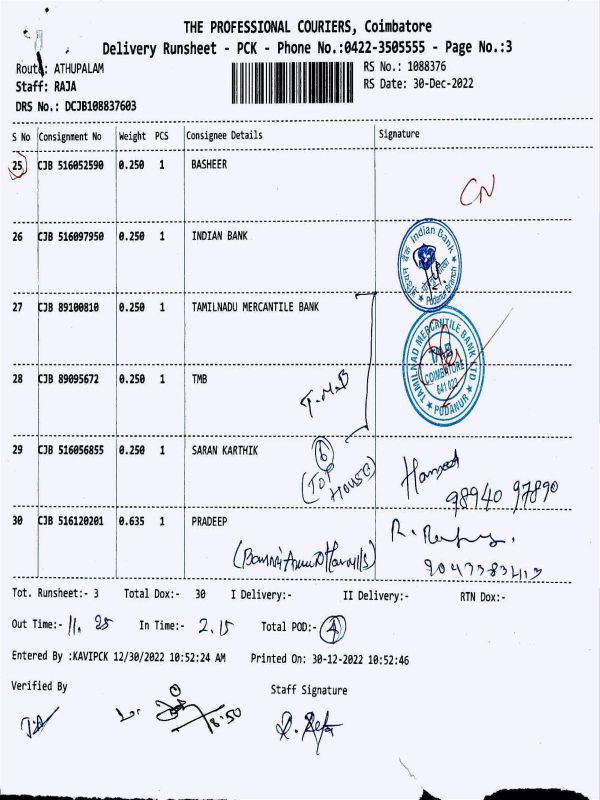 THE PROFESSIONAL COURIERS, Coimbatore
Delivery Runsheet - PCK - Phone No.:0422-3505555 - Page No.:3
Route: ATHUPALAM
RS No.: 1088376
Staff: RAJA
RS Date: 30-Dec-2022
DRS No.: DCJB108837603
S No Consignment No Weight PCS Consignee Details Signature
25 CJB 516052590 0.250 1 BASHEER
CN
26 CJB 516097950 0.250 1 INDIAN BANK
Indian Bank
Podanur Branch
27 CJB 89100810 0.250 1 TAMILNADU MERCANTILE BANK
TAMILNAD MERCANTILE BANK LTD
COIMBATORE
641 023
PODANUR
28 CJB 89095672 0.250 1 TMB
T.M.B
29 CJB 516056855 0.250 1 SARAN KARTHIK
6
(TOP
House)
98940 97890
30 CJB 516120201 0.635 1 PRADEEP
Tot. Runsheet:- 3 Total Dox:- 30 I Delivery:- II Delivery:- RTN Dox:-
Out Time:- 11.25 In Time:- 2.15 Total POD:- 4
Entered By :KAVIPCK 12/30/2022 10:52:24 AM Printed On: 30-12-2022 10:52:46
Verified By Staff Signature
18:50